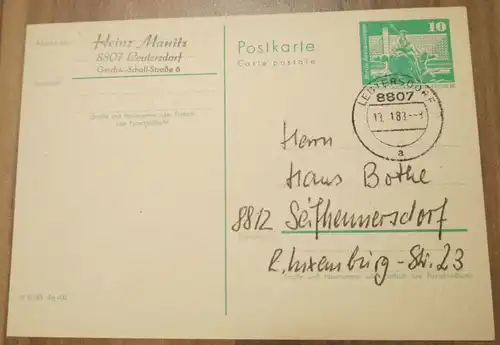 Heinz Manitz
8807 Leutersdorf
Geschw.-Scholl-Straße 6
Postkarte
Carte postale
10
LEUTERSDORF
8807
a
Herrn
Hans Bothe
8812 Seifhennersdorf
R. Luxemburg-Str. 23